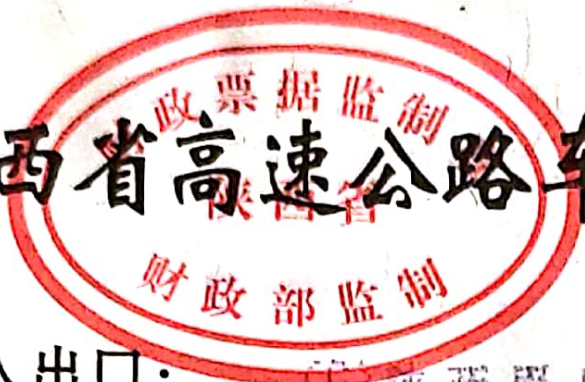 财政票据监制
西省高速公路车
陕西省
财政部监制
出口：